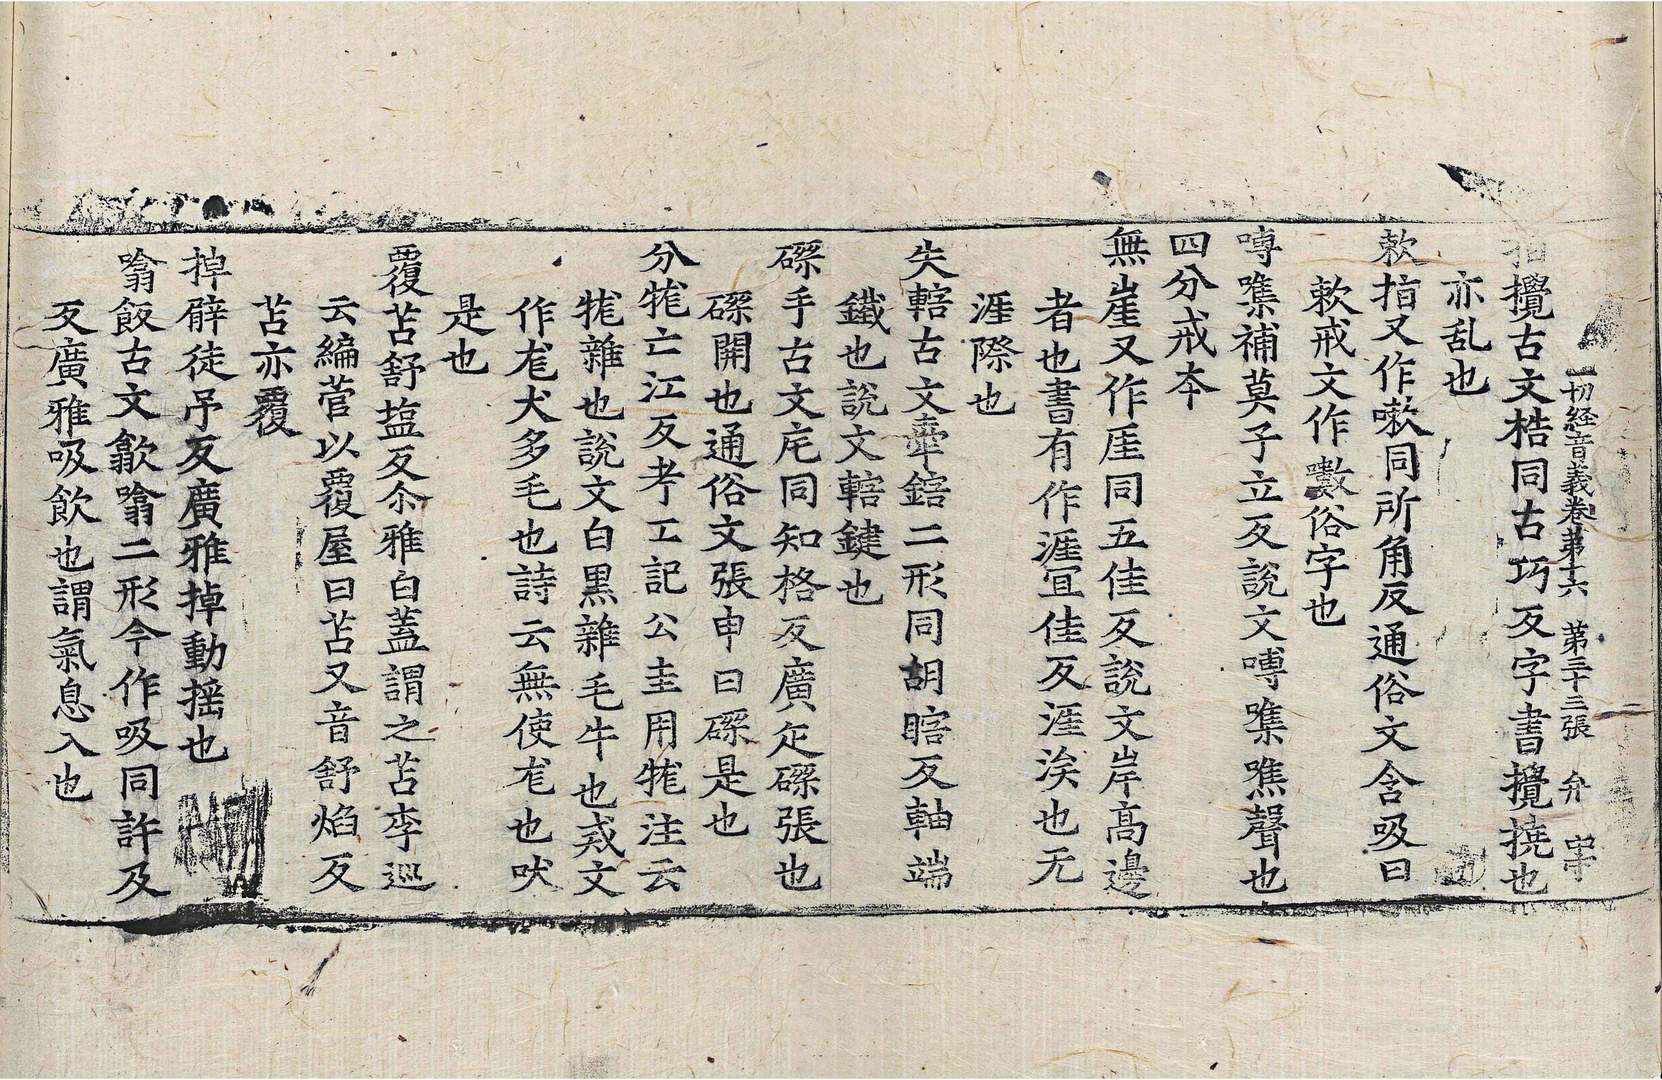 一切経音義卷苐十六 第三十三張 弁 中十
攪古文捁同古巧反字書攪撓也
亦乱也
欶指又作嗽同所角反通俗文含吸曰
欶戒文作㘜俗字也
嚩㗱補莫子立反說文嚩㗱噍聲也
四分戒夲
無崖又作厓同五佳反說文岸髙邊
者也書有作涯冝佳反涯涘也无
涯際也
失轄古文舝鎋二形同胡瞎反軸端
鐵也說文轄鍵也
磔手古文厇同知格反廣疋磔張也
磔開也通俗文張申曰磔是也
分牻亡江反考工記公圭用牻注云
牻雜也說文白黒雜毛牛也戒文
作尨犬多毛也詩云無使尨也吠
是也
覆苫舒塩反尒雅白蓋謂之苫李巡
云編菅以覆屋曰苫又音舒焰反
苫亦覆
掉臂徒吊反廣雅掉動揺也
噏飯古文歙噏二形今作吸同許及
反廣雅吸飮也謂氣息入也